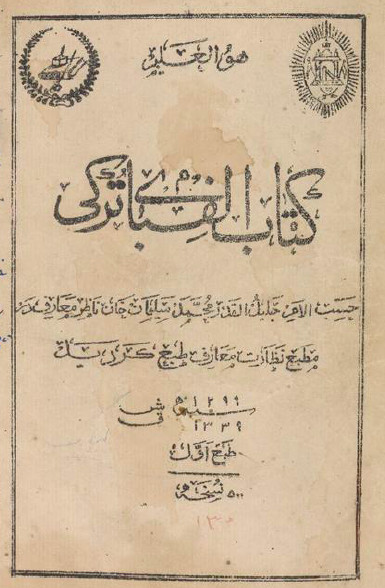 هو العلیم
کتاب الفبای ترکی
حسب الامر جلیل القدر محمد سلیمان خان ناظر معارف در
مطبع نظارت معارف طبع کردید
سنه ۱۲۹۹ ش
۱۳۳۹ ق
طبع اول
۵۰۰ نسخه
۱۳۰